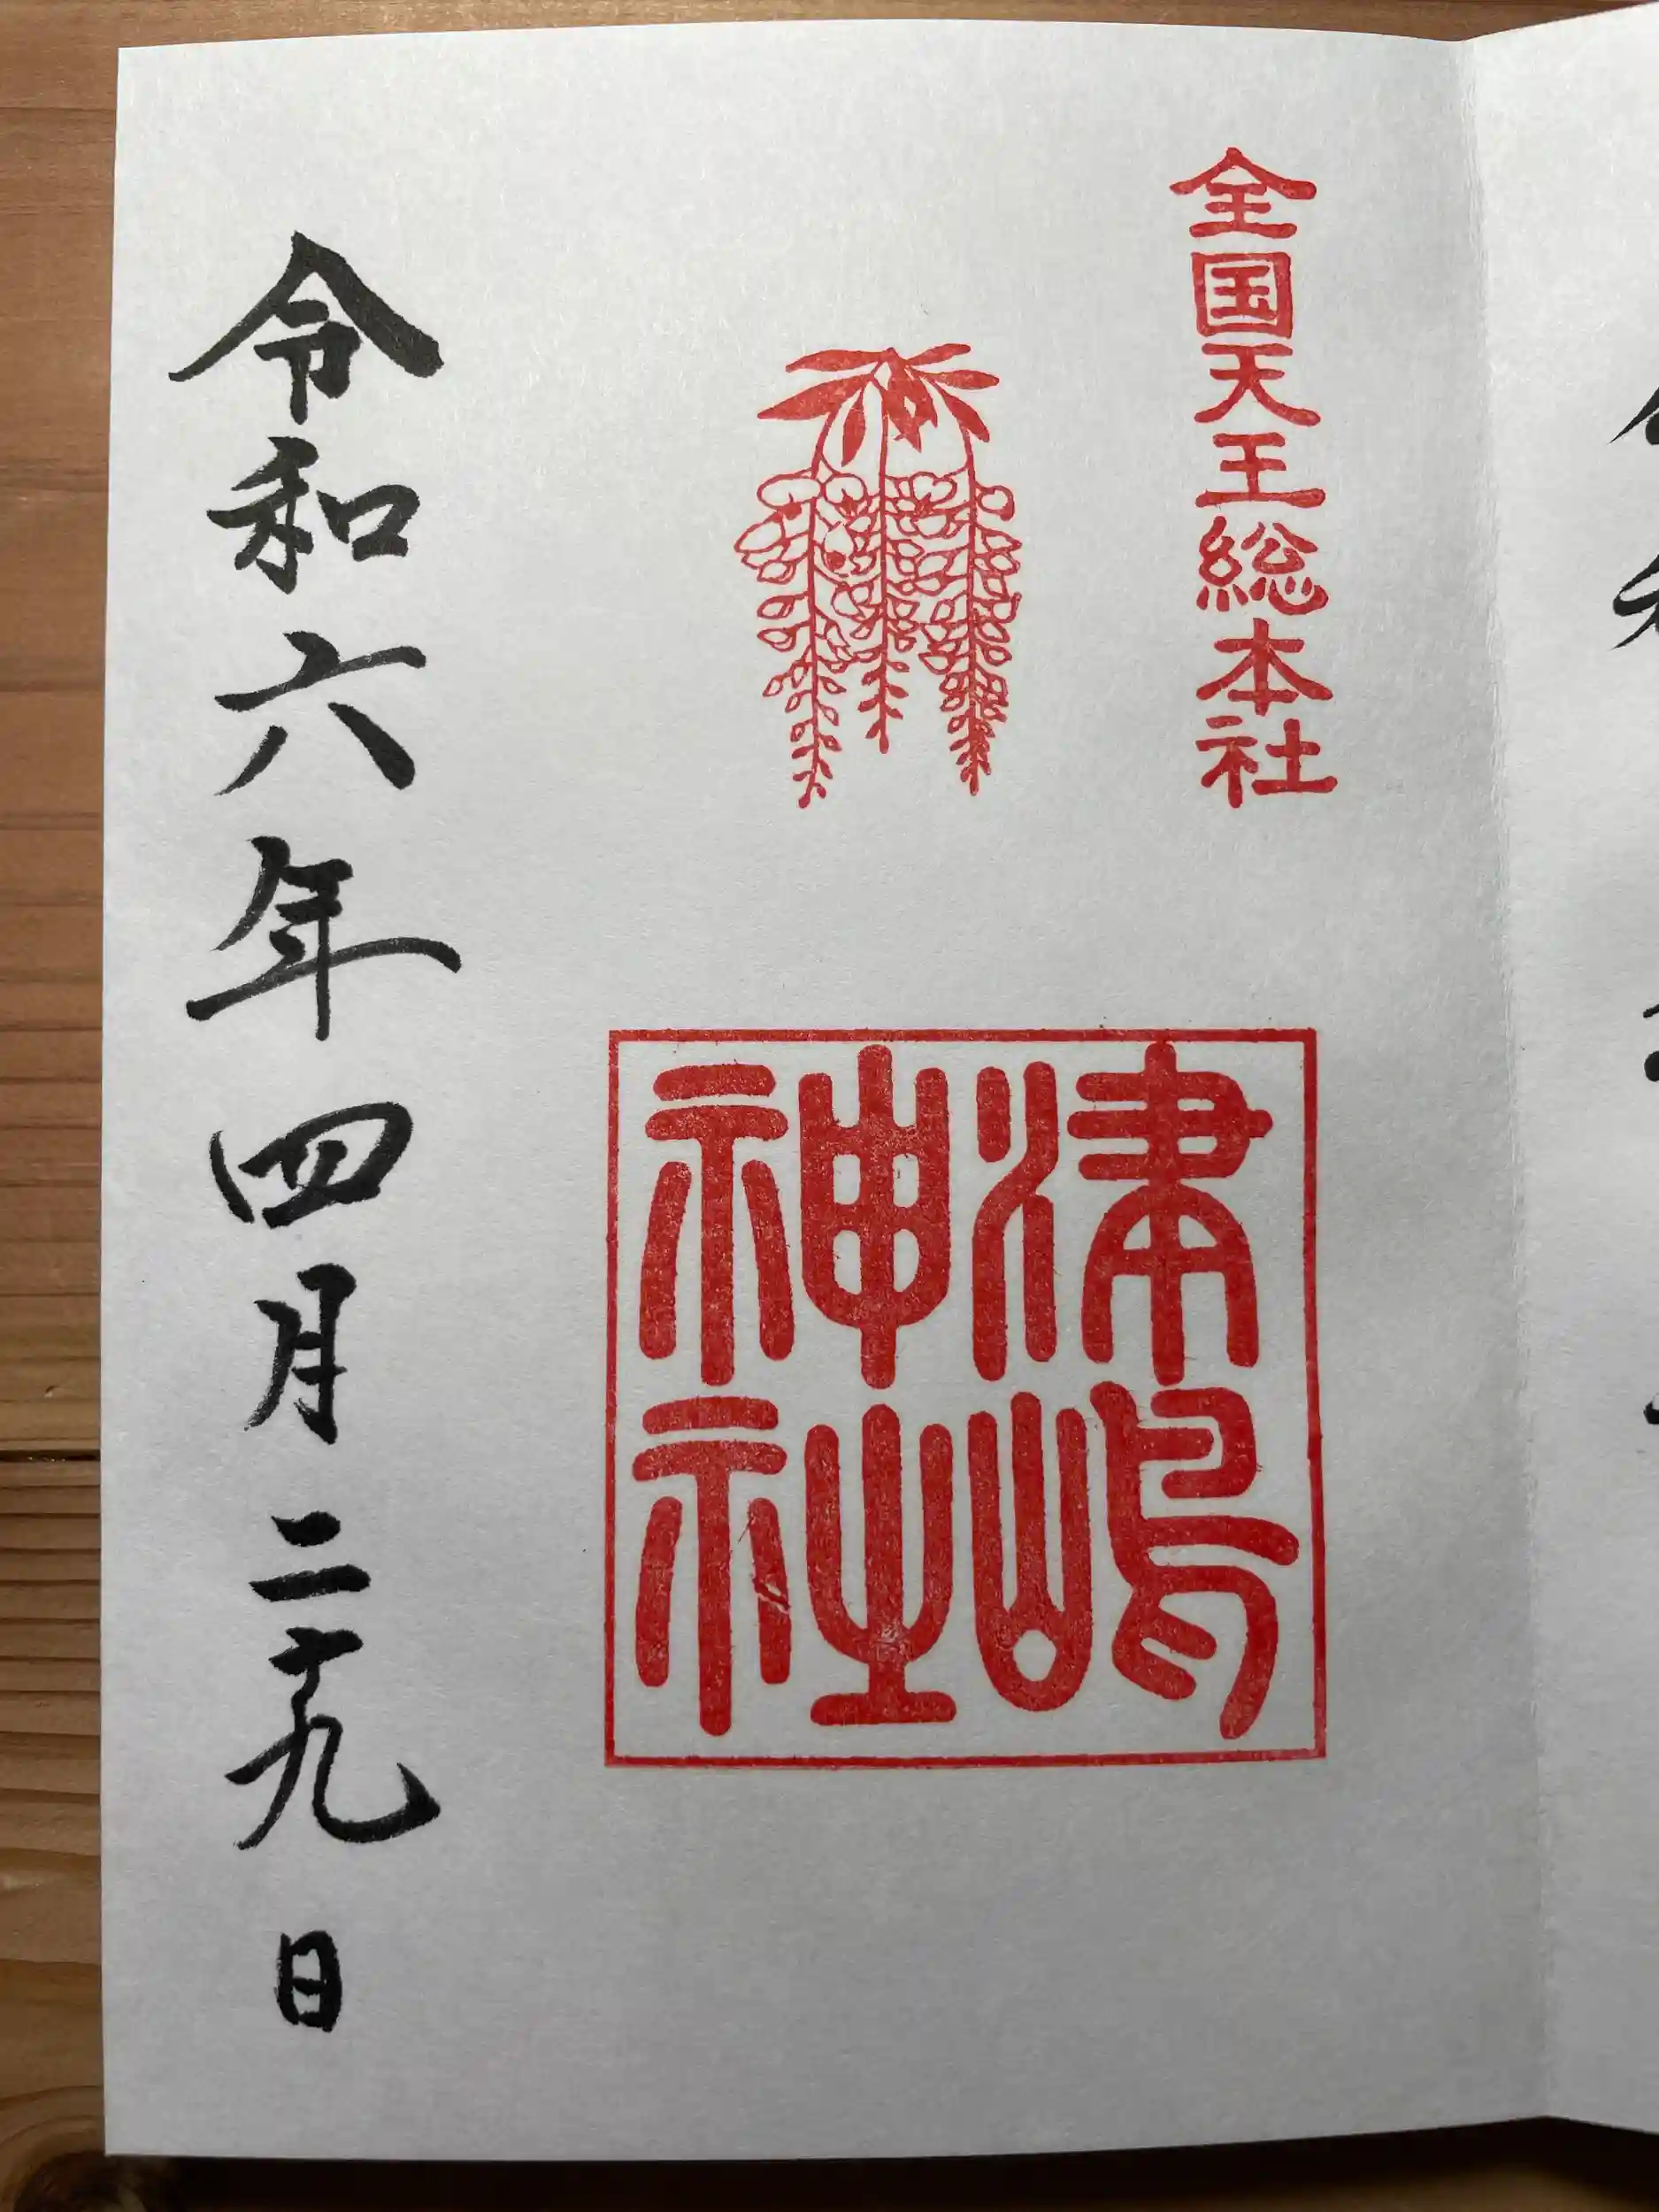 全国天王総本社
津嶋神社
令和六年四月二十九日